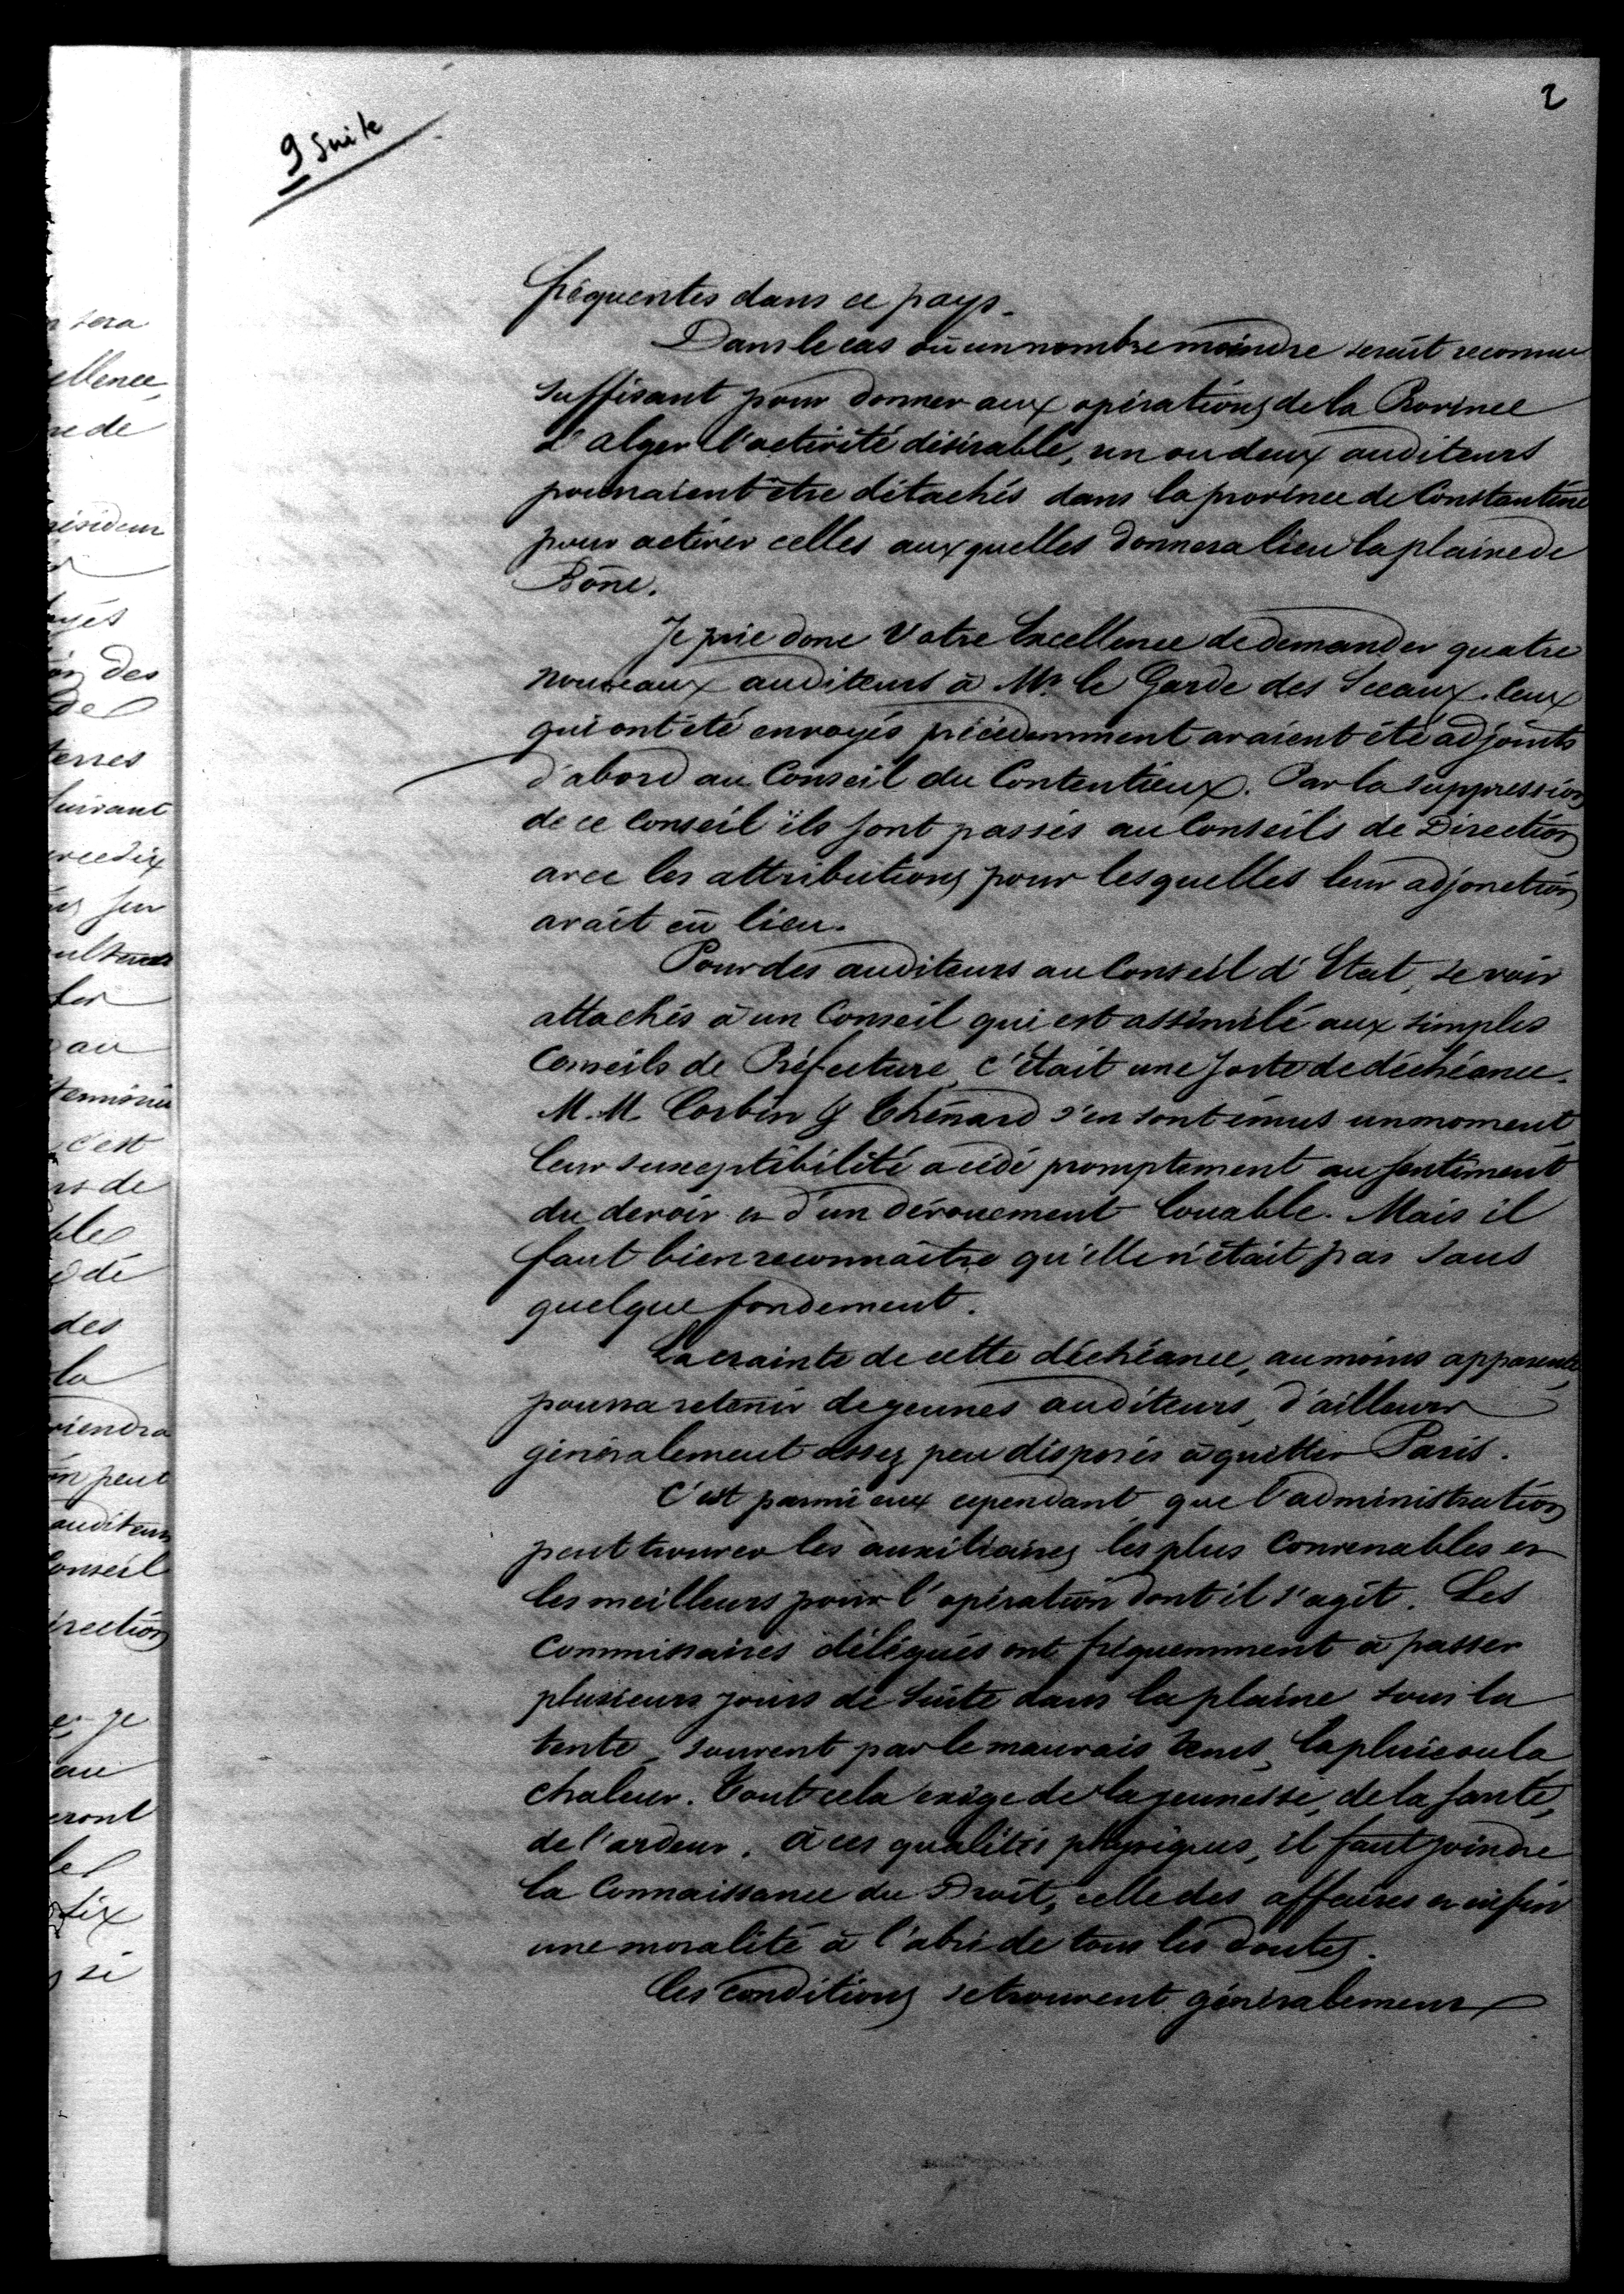 2
9 suite
fréquentes dans ce pays.
Dans le cas où un nombre moindre serait reconnu
suffisant pour donner aux opérations de la Province
d'Alger l'activité désirable, un ou deux auditeurs
pourraient être détachés dans la province de Constantine
pour activer celles auxquelles donnera lieu la plaine de
Bône.
Je prie donc Votre Excellence de demander quatre
nouveaux auditeurs à Mr. le Garde des Sceaux. Ceux
qui ont été envoyés précédemment avaient été adjoints
d'abord au Conseil du Contentieux. Par la suppression
de ce Conseil ils sont passés au Conseils de Direction
avec les attributions pour lesquelles leur adjonction
avait eu lieu.
Pour des auditeurs au Conseil d'Etat, se voir
attachés à un Conseil qui est assimilé aux simples
Conseils de Préfecture, c'était une sorte de déchéance.
M.M. Corbin & Thénard s'en sont émus un moment,
leur susceptibilité a cédé promptement au sentiment
du devoir et d'un dévouement louable. Mais il
faut bien reconnaître qu'elle n'était pas sans
quelque fondement.
La crainte de cette déchéance, au moins apparente,
pourra retenir de jeunes auditeurs, d'ailleurs
généralement assez peu disposés à quitter Paris.
C'est parmi eux cependant que l'administration
peut trouver les auxiliaires les plus convenables et
les meilleurs pour l'opération dont il s'agit. Les
commissaires délégués ont fréquemment à passer
plusieurs jours de suite dans la plaine sous la
tente, souvent par le mauvais tems, la pluie ou la
chaleur. Tout cela exige de la jeunesse, de la santé,
de l'ardeur. à ces qualités physiques, il faut joindre
la Connaissance du Droit, celle des affaires et enfin
une moralité à l'abri de tous les doutes.
Ces conditions se trouvent généralement
sera
ellence,
re de
résident
yés
on des
de
terres
suivant
sur
au
c'est
rs de
ble
des
la
viendra
peut
auditeurs
Conseil
irection
je
eront
les
dix
si